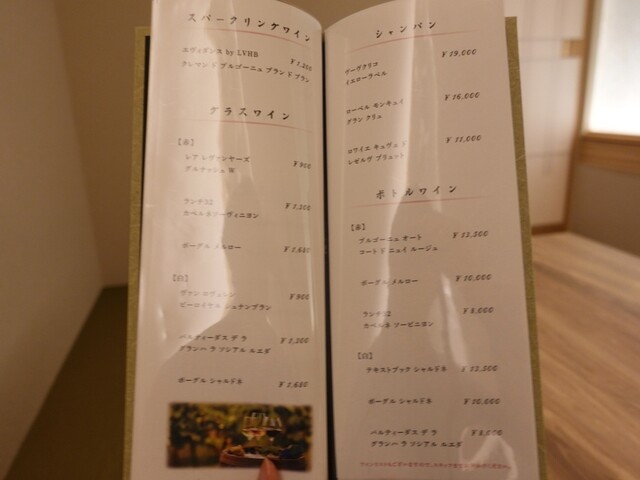 スパークリングワイン
エヴィダンス by LVHB ¥1,200
クレマン ド ブルゴーニュ ブラン ド ブラン
グラスワイン
【赤】
レア レヴァンヤーズ ¥900
グルナッシュ
ランチ32 ¥1,200
カベルネソーヴィニヨン
ボーグル メルロー ¥1,680
【白】
ヴァン ¥900
ピーロイヤル シュナンブラン
バルティーダス デ ラ ¥1,200
グランハ ラ ソシアル ルエダ
ボーグル シャルドネ ¥1,680
シャンパン
ヴーヴクリコ ¥19,000
ローベル モンキュイ ¥16,000
グラン クリュ
ロワイエ キュヴェ ド ¥11,000
レゼルヴ ブリュット
ボトルワイン
【赤】
ブルゴーニュ オート ¥13,500
コート ド ニュイ ルージュ
ボーグル メルロー ¥10,000
ランチ32 ¥8,000
カベルネ ソービニヨン
【白】
テキストブック シャルドネ ¥13,500
ボーグル シャルドネ ¥10,000
バルティーダス デ ラ ¥8,000
グランハ ラ ソシアル ルエダ